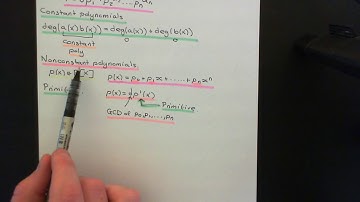 Constant polynomials
deg(a(x)b(x)) = deg(a(x)) + deg(b(x))
0 0
Constant
poly
Nonconstant polynomials
p(x) [x] p(x) = p₀ + p₁x + ...... + pₙxⁿ
Primiti p(x) = d p'(x)
Primitive
GCD of p₀, p₁, ..., pₙ